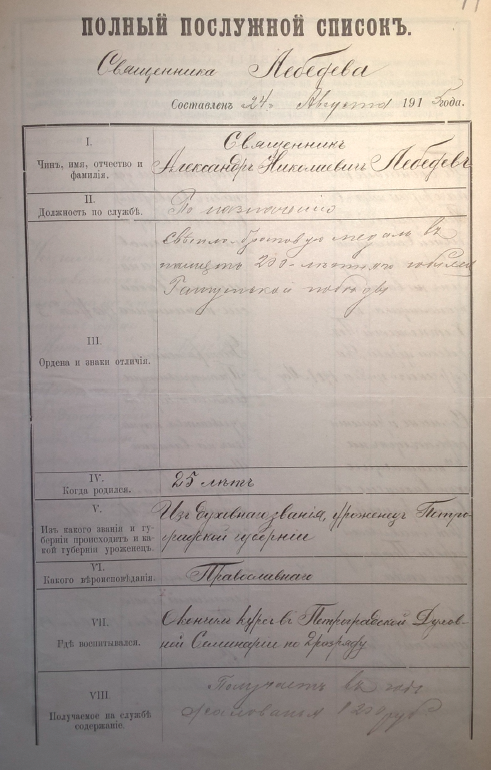 ПОЛНЫЙ ПОСЛУЖНОЙ СПИСОКЪ.
Священника Лебедева
Составленъ 24го Августа 1915 года.
I.
Чинъ, имя, отчество и
фамилія.
Священникъ
Александръ Николаевич Лебедевъ
II.
Должность по службѣ.
По назначенію
III.
Ордена и знаки отличія.
Свѣтло-бронзовую медаль въ
память 200-лѣтняго юбилея
Гангутской победы
IV.
Когда родился.
25 лѣтъ
V.
Изъ какого званія и гу-
берніи происходитъ и ка-
кой губерніи уроженецъ.
Изъ духовнаго званія, уроженецъ Петро-
градской губерніи
VI.
Какого вѣроисповѣданія.
Православнаго
VII.
Гдѣ воспитывался.
Окончил курсъ въ Петроградской Духов-
ной Семинаріи по 2 разряду
VIII.
Получаемое на службѣ
содержаніе.
Получаетъ въ годъ
жалованья 1200 руб